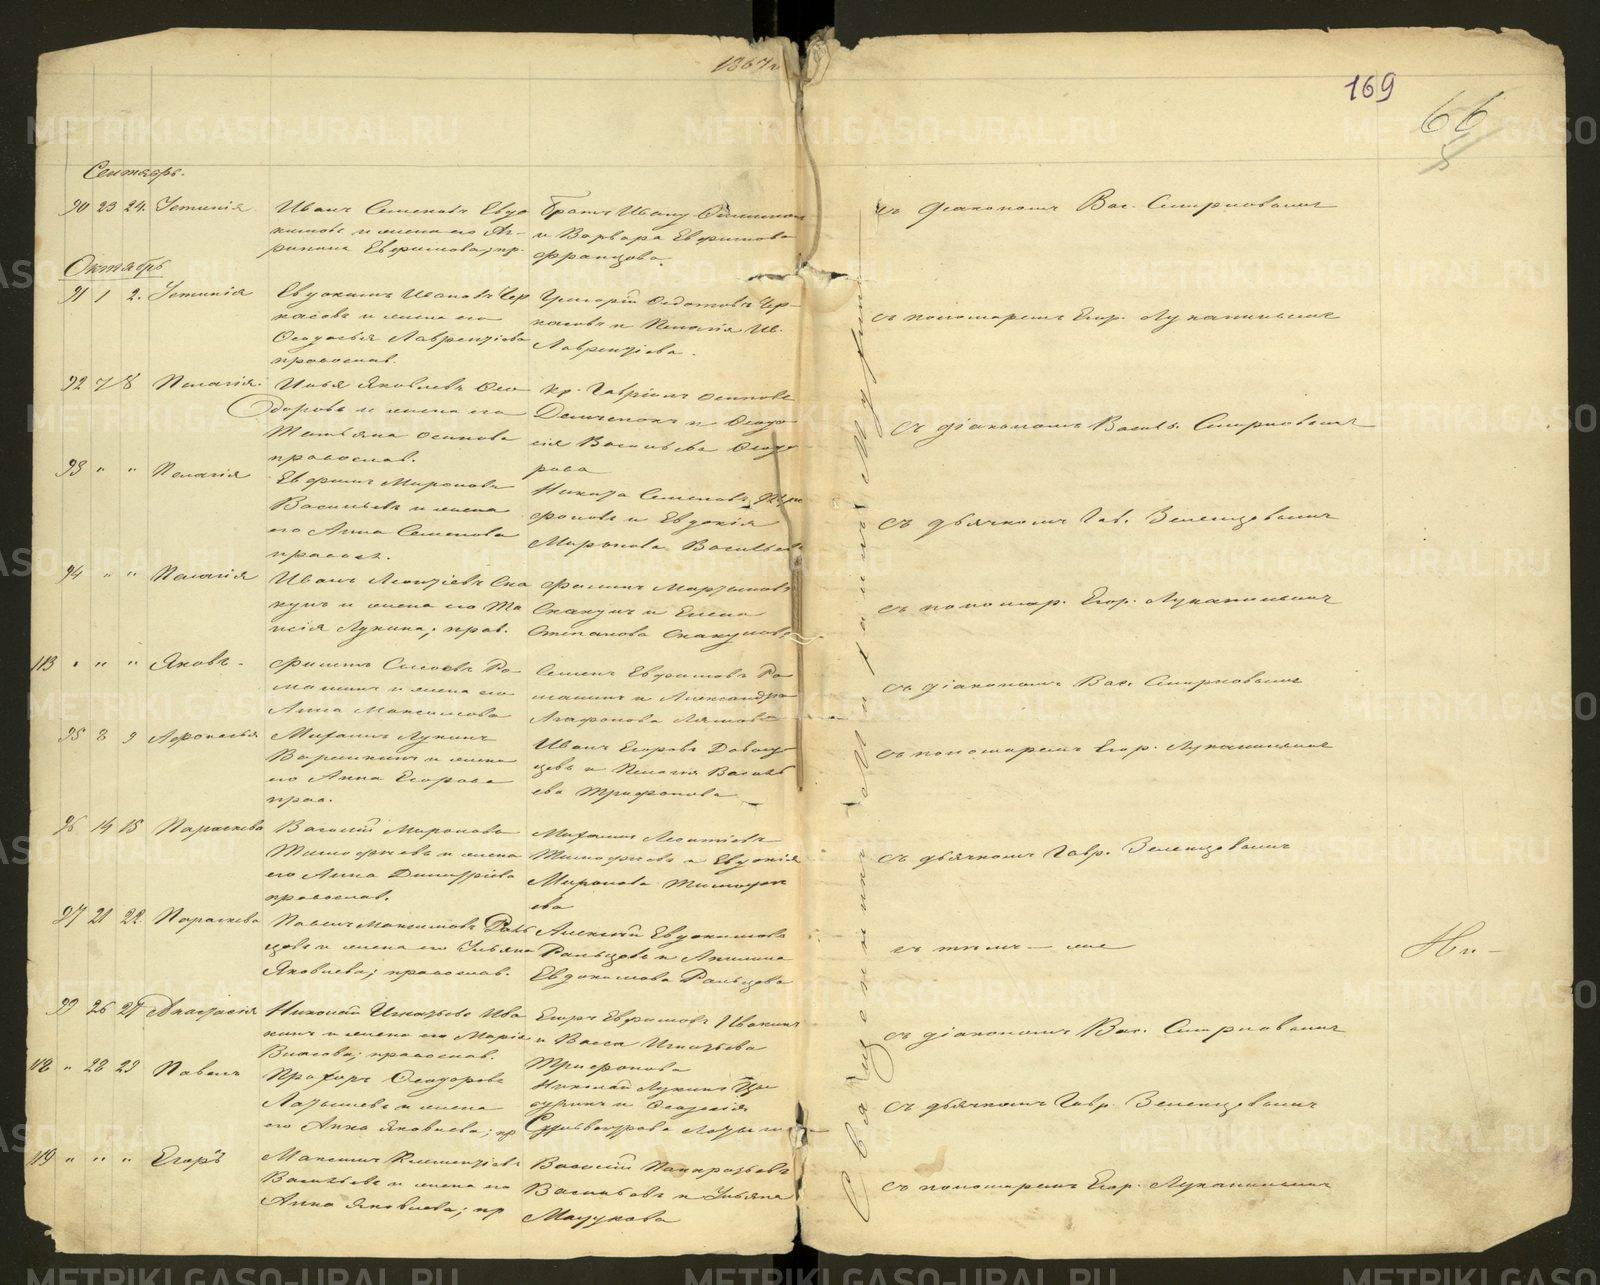 1867 г
169
66
Сентябрь.
90 23 24. Устинія Иванъ Семеновъ Евдо
кимовъ и жена его Аг-
рипина Ефимова; пр.
Братъ Ивану
и Варвара Ефимова
Францова.
съ діакономъ Вас. Смирновымъ
Октябрь
91 1 2. Устинія Евдокимъ Ивановъ Чер
касовъ и жена его
Ѳедосья Лаврентіева
православ.
Григорій Ѳедотовъ Чер-
касовъ и Пелагія Ив.
Лаврентіева.
съ пономаремъ Егор. Луканинымъ
92 7 8 Пелагія. Илья Яковлевъ Ѳео
доровъ и жена его
Татьяна Осипова
православ.
кр. Гавріилъ Осиповъ
и Ѳеодо
сія Васильева Ѳеодо-
рова
съ діакономъ Василь. Смирновымъ
93 " " Пелагія Ефимъ Мироновъ
Васильевъ и жена
его Анна Семенова
правосл.
Никита Семеновъ
фоновъ и Евдокія
Миронова Васильева
съ дьячкомъ Гав. Зеленцовымъ
94 " " Пелагія Иванъ Леонтіевъ Ска
кунъ и жена его Та
исія Лукина; прав.
Филипъ Мартыновъ
Скакунъ и Елена
Степанова Скакунова
съ пономар. Егор. Луканинымъ
113 " " " Яковъ- Филипъ Сысоевъ Ро
машинъ и жена его
Анна Максимова
Семенъ Ефимовъ Ро
машинъ и Александра
Агафонова
съ діакономъ Вас. Смирновымъ
95 8 9 Афонасья Михаилъ Лукинъ
и жена
его Анна Егорова
прав.
Иванъ Егоровъ
и Пелагія Василь
ева Трифонова
съ пономаремъ Егор. Луканинымъ
96 14 15 Параскева Василій Мироновъ
Тимофеевъ и жена
его Анна Димитріева
православ.
Михаилъ Леонтіевъ
Тимофеевъ и Евдокія
Миронова Тимофе
ева
съ дьячкомъ Гавр. Зеленцовымъ
97 21 22. Параскева Павелъ Максимовъ Раль
цовъ и жена его Ульяна
Яковлева; православ.
Алексѣй Евдокимовъ
Ральцовъ и Акилина
Евдокимова Ральцова
съ тѣмъ-же
Ни-
99 26 27 Анастасія Николай Игнатьевъ Ива
кинъ и жена его Марія
Власова; православ.
Егоръ Ефимовъ Ивакинъ
и Васса Игнатьева
Трифонова
съ діакономъ Вас. Смирновымъ
118 " 28 29 Павелъ Прохоръ Ѳеодоровъ
Латышевъ и жена
его Анна Яковлева; пр
Николай Лукинъ
и Ѳеодосія
съ дьячкомъ Гавр. Зеленцовымъ
119 " " " Егоръ Максимъ Климентіевъ
Васильевъ и жена его
Анна Яковлева; пр
Василій Панкратьевъ
Васильевъ и Ульяна
Мачукова
съ пономаремъ Егор. Луканинымъ
Священникъ